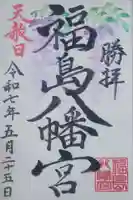 勝拝
福島八幡宮
天赦日
令和七年五月二十五日